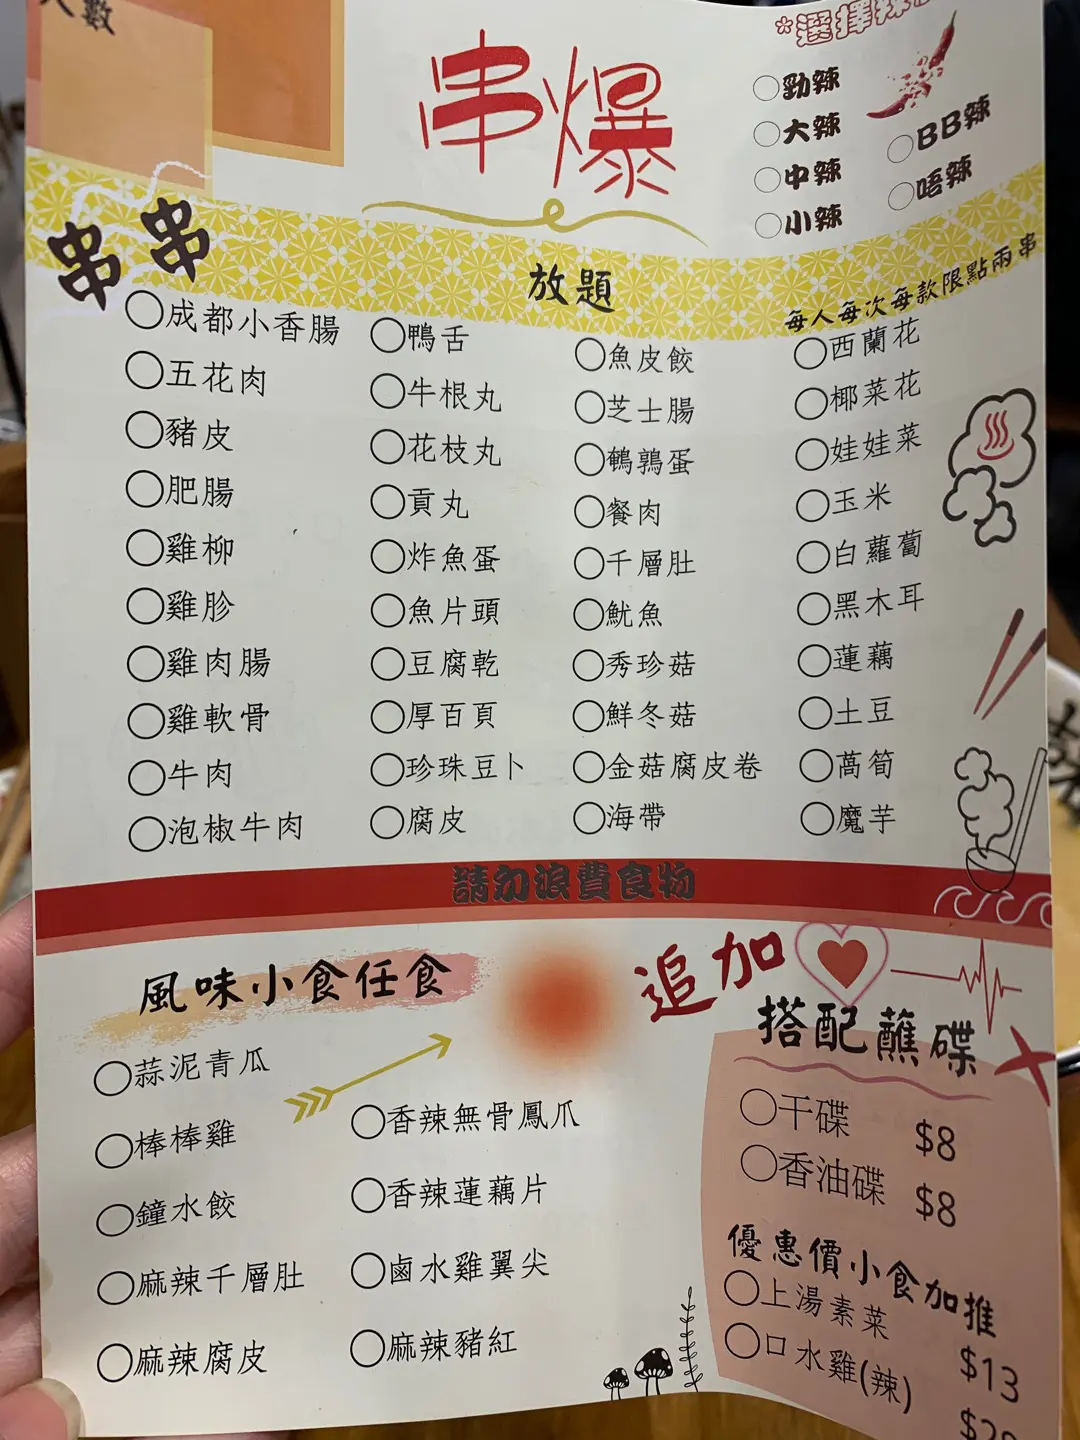 人數
串爆
*選擇辣
勁辣
大辣
中辣
小辣
BB辣
唔辣
串串
放題
每人每次每款限點兩串
成都小香腸
五花肉
豬皮
肥腸
雞柳
雞胗
雞肉腸
雞軟骨
牛肉
泡椒牛肉
鴨舌
牛根丸
花枝丸
貢丸
炸魚蛋
魚片頭
豆腐乾
厚百頁
珍珠豆卜
腐皮
魚皮餃
芝士腸
鵪鶉蛋
餐肉
千層肚
魷魚
秀珍菇
鮮冬菇
金菇腐皮卷
海帶
西蘭花
椰菜花
娃娃菜
玉米
白蘿蔔
黑木耳
蓮藕
土豆
萵筍
魔芋
請勿浪費食物
風味小食任食
蒜泥青瓜
棒棒雞
鐘水餃
麻辣千層肚
麻辣腐皮
香辣無骨鳳爪
香辣蓮藕片
鹵水雞翼尖
麻辣豬紅
追加
搭配蘸碟
干碟 $8
香油碟 $8
優惠價小食加推
上湯素菜 $13
口水雞(辣)